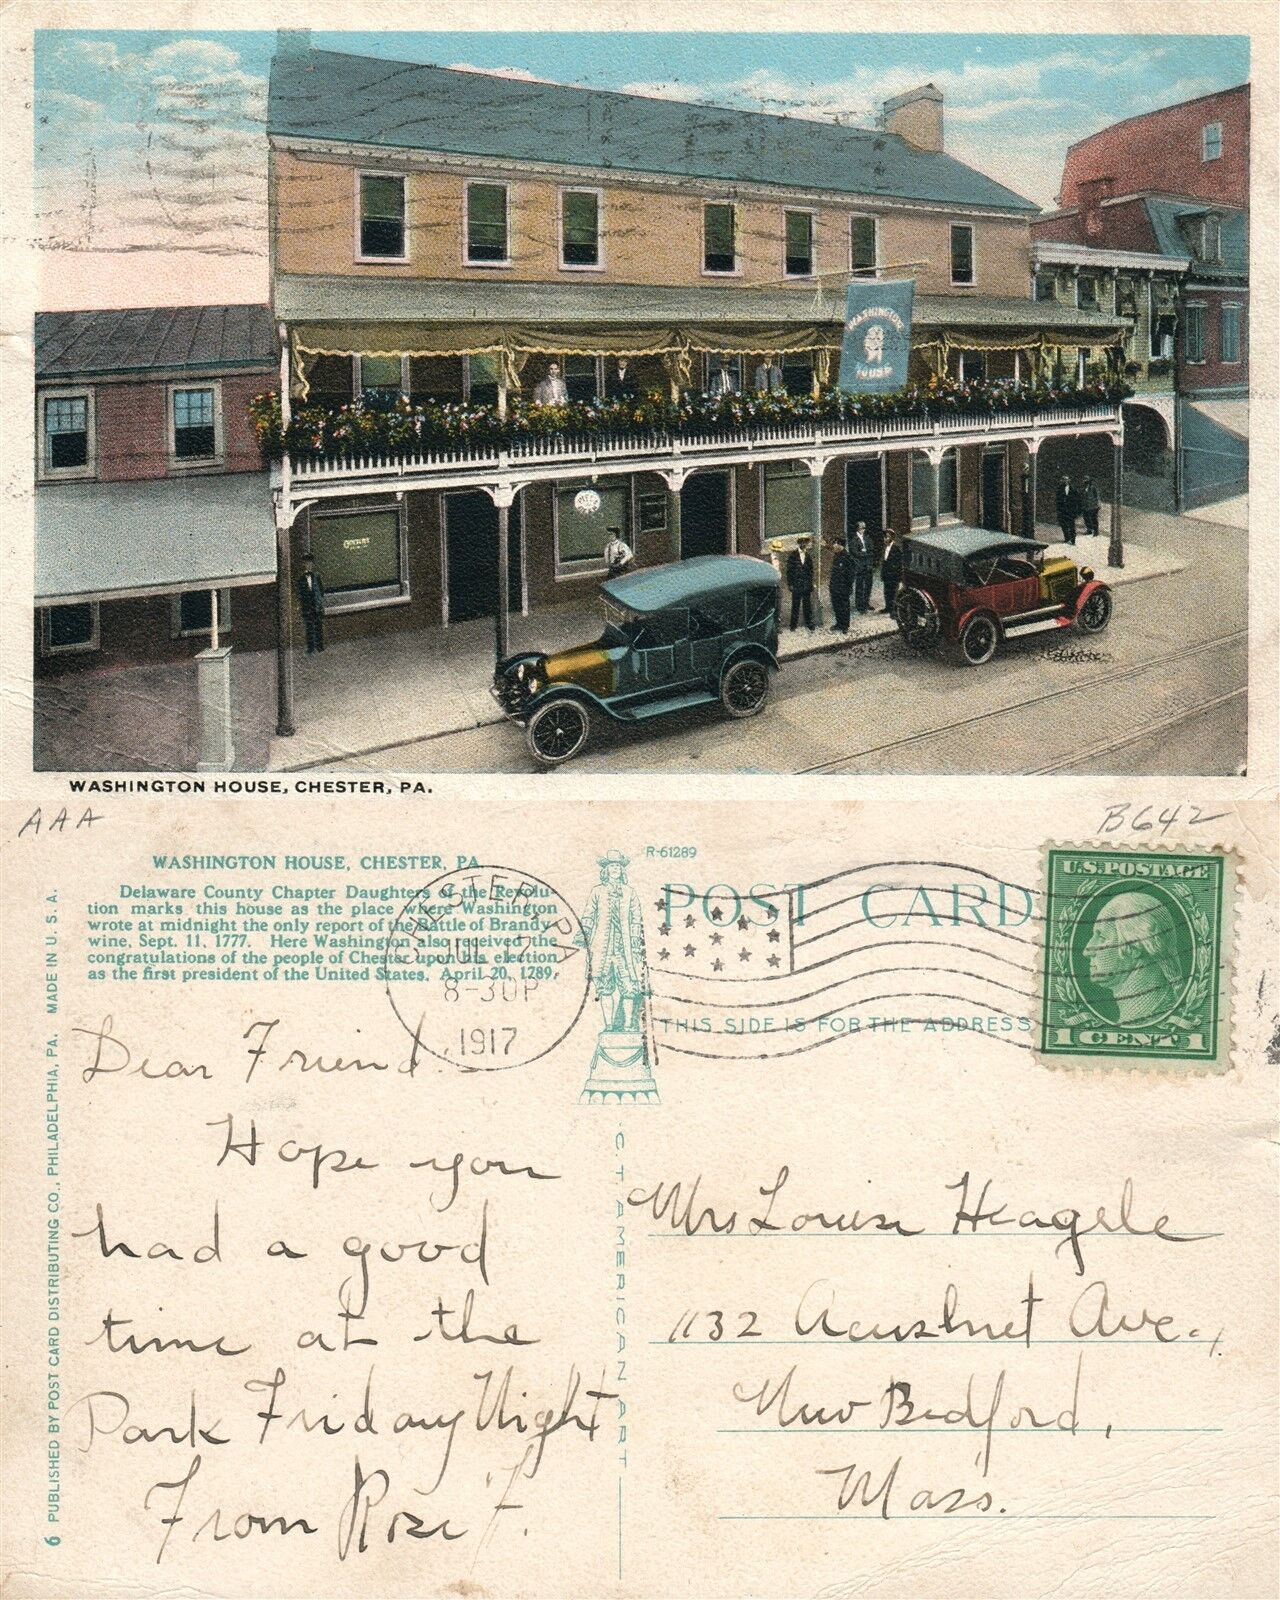 WASHINGTON
HOUSE
WASHINGTON HOUSE, CHESTER, PA.
AAA
B642
WASHINGTON HOUSE, CHESTER, PA.
Delaware County Chapter Daughters of the Revolu-
tion marks this house as the place where Washington
wrote at midnight the only report of the Battle of Brandy-
wine, Sept. 11, 1777. Here Washington also received the
congratulations of the people of Chester upon his election
as the first president of the United States, April 20, 1289.
R-61289
POST CARD
THIS SIDE IS FOR THE ADDRESS
CHESTER, PA
JUL 17
8-30P
1917
U.S. POSTAGE
1 CENT 1
6 PUBLISHED BY POST CARD DISTRIBUTING CO., PHILADELPHIA, PA. MADE IN U. S. A.
C. T. AMERICAN ART
Dear Friend.
Hope you
had a good
time at the
Park Friday Night
From Rose F.
Mrs Louise Heagele
1132 Acushnet Ave.,
New Bedford,
Mass.